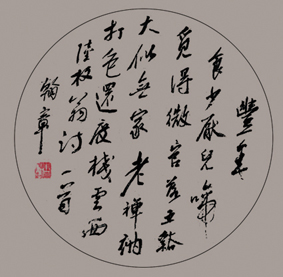 豐年
食少厭兒啼
覓得微官落五谿
大似無家老禪衲
打包還度棧雲西
陸放翁詩一首
翰章